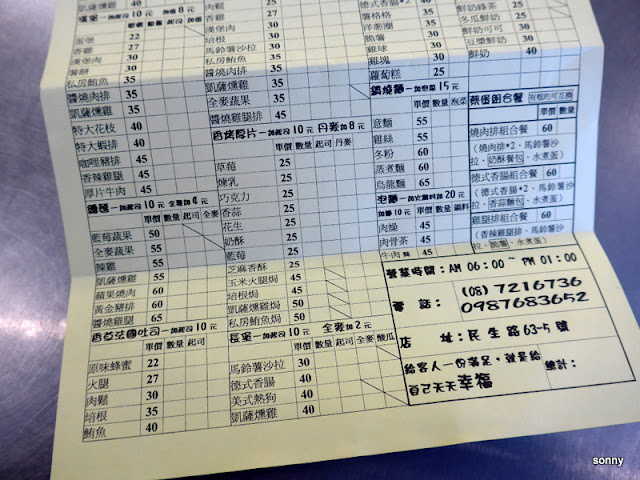 凱薩燻雞 35
蛋堡 一加起司10元 加蛋8元
蛋堡 22
香雞 27
漢堡肉 30
薯餅 30
私房鮪魚 35
醬燒肉排 35
凱薩燻雞 35
特大花枝 40
特大蝦排 40
咖哩豬排 45
香辣雞腿 45
厚片牛肉 45
一加起司10元 全麥加4元
單價 數量 起司 全麥
藍莓蔬果 50
全麥蔬果 55
辣雞 55
蘋果燒肉 60
黃金豬排 60
醬燒雞腿 65
香草法國吐司 一加起司10元
單價 數量 起司
原味蜂蜜 22
火腿 27
肉鬆 30
培根 35
鮪魚 40
肉鬆 25
香雞 25
漢堡肉 30
培根 30
馬鈴薯沙拉 30
醬燒肉排 35
凱薩燻雞 35
全麥蔬果 35
醬燒雞腿排 45
香烤厚片 一加起司10元 丹麥加8元
單價 數量 起司 丹麥
草莓 25
煉乳 25
巧克力 25
香蒜 25
花生 25
奶酥 25
藍莓 25
芝麻香酥 25
玉米火腿焗 45
培根焗 45
凱薩燻雞焗 50
私房鮪魚焗 50
長堡 一加起司10元 全麥加2元
單價 數量 起司 全麥 酸瓜
馬鈴薯沙拉 30
德式香腸 40
美式熱狗 40
凱薩燻雞 40
德式香腸*2 40
薯格格 35
洋蔥圈 30
脆薯 30
雞球 30
雞塊 30
蘿蔔糕 25
鍋燒麵 一加泡菜15元
單價 數量 泡菜
意麵 55
雞絲 55
冬粉 60
蒸煮麵 60
烏龍麵 65
泡麵 一加火鍋料加20元
加麵10元 單價 數量 鍋料
肉燥 45
肉骨茶 45
牛肉 45
鮮奶綠茶
冬瓜鮮奶
鮮奶可可 30
豆漿鮮奶 30
鮮奶 40
蔬蛋組合餐
單價 數量
燒肉排組合餐 60
(燒肉排*2、馬鈴薯沙拉、奶酥餐包、水煮蛋)
德式香腸組合餐 60
(德式香腸*2、馬鈴薯沙拉、香蒜麵包、水煮蛋)
雞腿排組合餐 60
(香辣雞腿排、馬鈴薯沙拉、脆薯、水煮蛋)
營業時間：AM 06:00~ PM 01:00
電 話： (08) 7216736
0987683652
店 址：民生路63-5號
給客人一份滿足，就是給自己天天幸福
總計：
sonny